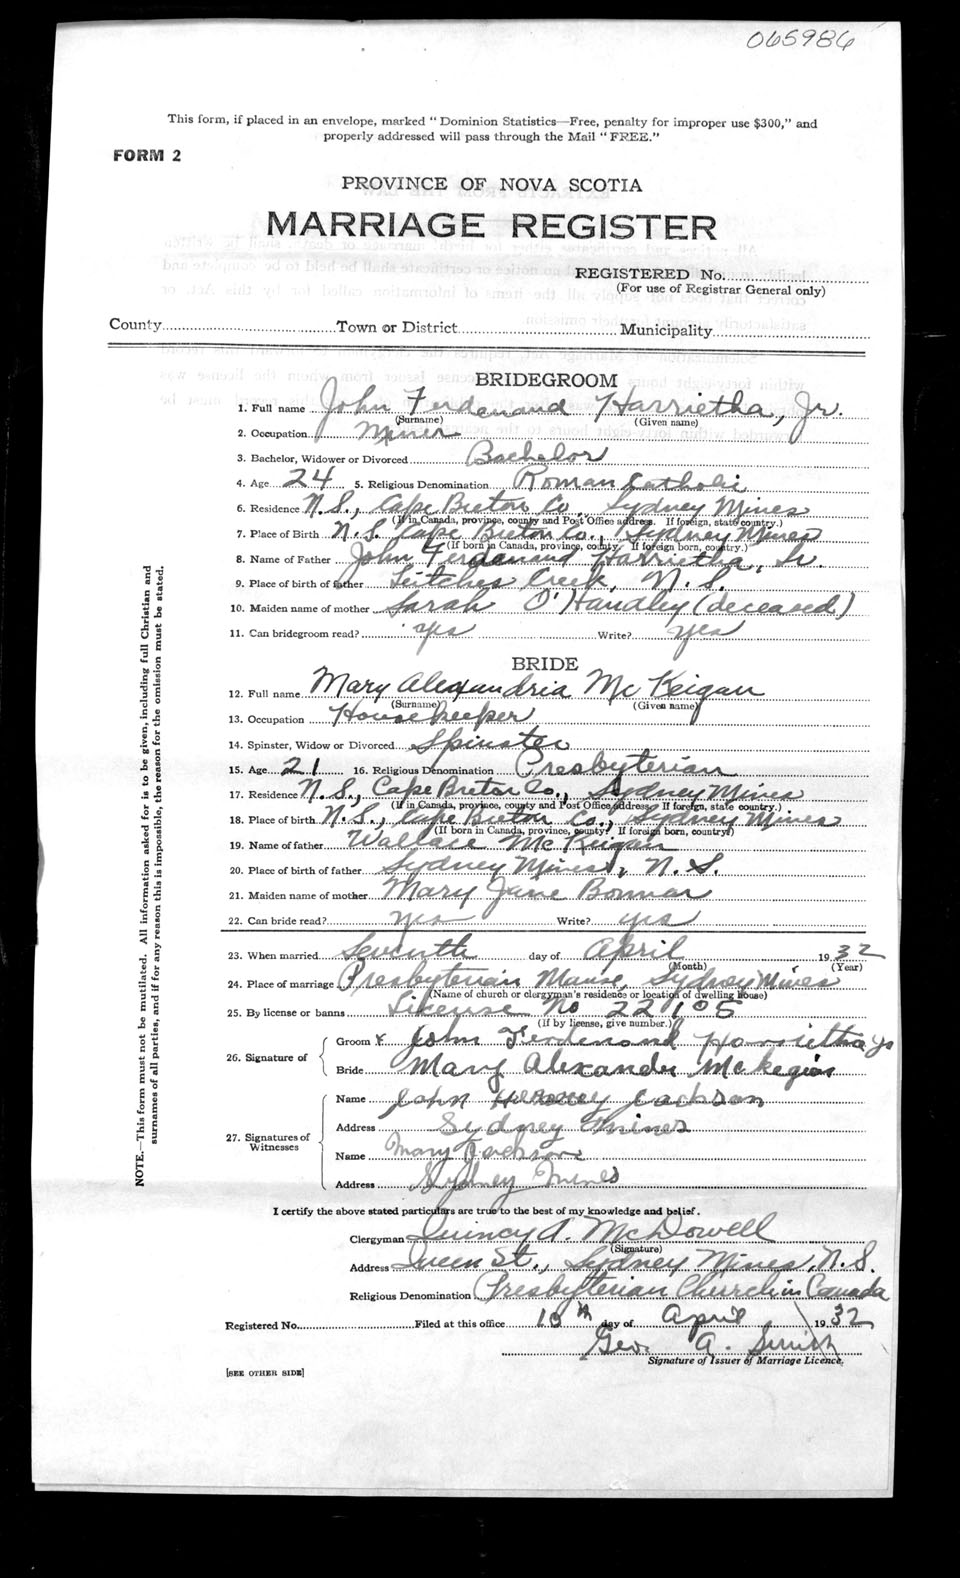 065986
This form, if placed in an envelope, marked "Dominion Statistics—Free, penalty for improper use $300," and
properly addressed will pass through the Mail "FREE."
FORM 2
PROVINCE OF NOVA SCOTIA
MARRIAGE REGISTER
REGISTERED No.
(For use of Registrar General only)
County Town or District Municipality
BRIDEGROOM
1. Full name John Ferdenand Harrietha, Jr.
(Surname) (Given name)
2. Occupation Miner
3. Bachelor, Widower or Divorced Bachelor
4. Age 24 5. Religious Denomination Roman Catholic
6. Residence N.S., Cape Breton Co., Sydney Mines
(If in Canada, province, county and Post Office address. If foreign, state country.)
7. Place of Birth N.S. Cape Breton Co., Sydney Mines
(If born in Canada, province, county. If foreign born, country.)
8. Name of Father John Ferdenand Harrietha, Sr.
9. Place of birth of father Leitches Creek, N.S.
10. Maiden name of mother Sarah O'Handley (deceased)
11. Can bridegroom read? yes Write? yes
BRIDE
12. Full name Mary Alexandria McKeigan
(Surname) (Given name)
13. Occupation Housekeeper
14. Spinster, Widow or Divorced Spinster
15. Age 21 16. Religious Denomination Presbyterian
17. Residence N.S., Cape Breton Co., Sydney Mines
(If in Canada, province, county and Post Office address If foreign, state country.)
18. Place of birth N.S., Cape Breton Co., Sydney Mines
(If born in Canada, province, county? If foreign born, country?)
19. Name of father Wallace McKeigan
20. Place of birth of father Sydney Mines, N.S.
21. Maiden name of mother Mary Jane Bonnar
22. Can bride read? yes Write? yes
23. When married Seventh day of April 1932
(Month) (Year)
24. Place of marriage Presbyterian Manse, Sydney Mines
(Name of church or clergyman's residence or location of dwelling house)
25. By license or banns License No 22105
(If by license, give number.)
26. Signature of
Groom X John Ferdenand Harrietha Jr
Bride Mary Alexander McKegian
27. Signatures of Witnesses
Name John Jackson
Address Sydney Mines
Name Mary Jackson
Address Sydney Mines
I certify the above stated particulars are true to the best of my knowledge and belief.
Clergyman Quincy A. McDowell
(Signature)
Address Queen St., Sydney Mines, N.S.
Religious Denomination Presbyterian Church in Canada
Registered No. Filed at this office 10th day of April 1932
Geo. A. Smith
Signature of Issuer of Marriage Licence.
[SEE OTHER SIDE]
NOTE.—This form must not be mutilated. All information asked for is to be given, including full Christian and
surnames of all parties, and if for any reason this is impossible, the reason for the omission must be stated.